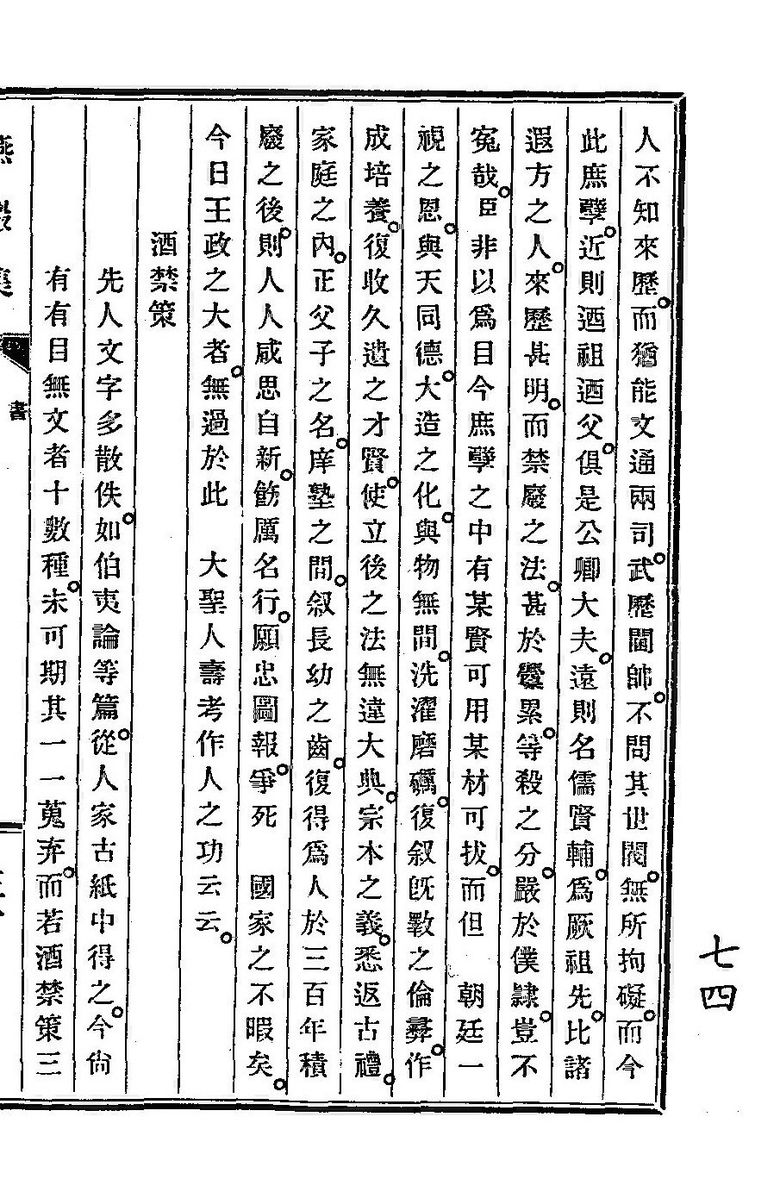 人不知來歷。而猶能文通兩司。武歷閫帥。不問其世閥。無所拘礙。而今
此庶孼。近則迺祖迺父。俱是公卿大夫。遠則名儒賢輔。爲厥祖先。比諸
遐方之人。來歷甚明。而禁廢之法。甚於釁累。等殺之分。嚴於僕隷。豈不
寃哉。臣非以爲目今庶孼之中有某賢可用某材可拔。而但 朝廷一
視之恩。與天同德。大造之化。與物無間。洗濯磨礪。復叙旣斁之倫彛。作
成培養。復收久遺之才賢。使立後之法無違大典。宗本之義。悉返古禮。
家庭之內。正父子之名。庠塾之間。叙長幼之齒。復得爲人於三百年積
廢之後。則人人咸思自新。飭厲名行。願忠圖報。爭死 國家之不暇矣。
今日王政之大者。無過於此 大聖人壽考作人之功云云。
酒禁策
先人文字多散佚。如伯夷論等篇。從人家古紙中得之。今尙
有有目無文者十數種。未可期其一一蒐弆。而若酒禁策三
燕巖集
書
七四